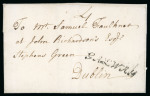 To Mr. Samuel Faulkner
at John Richardson's Esqr.
Stephens Green
Dublin